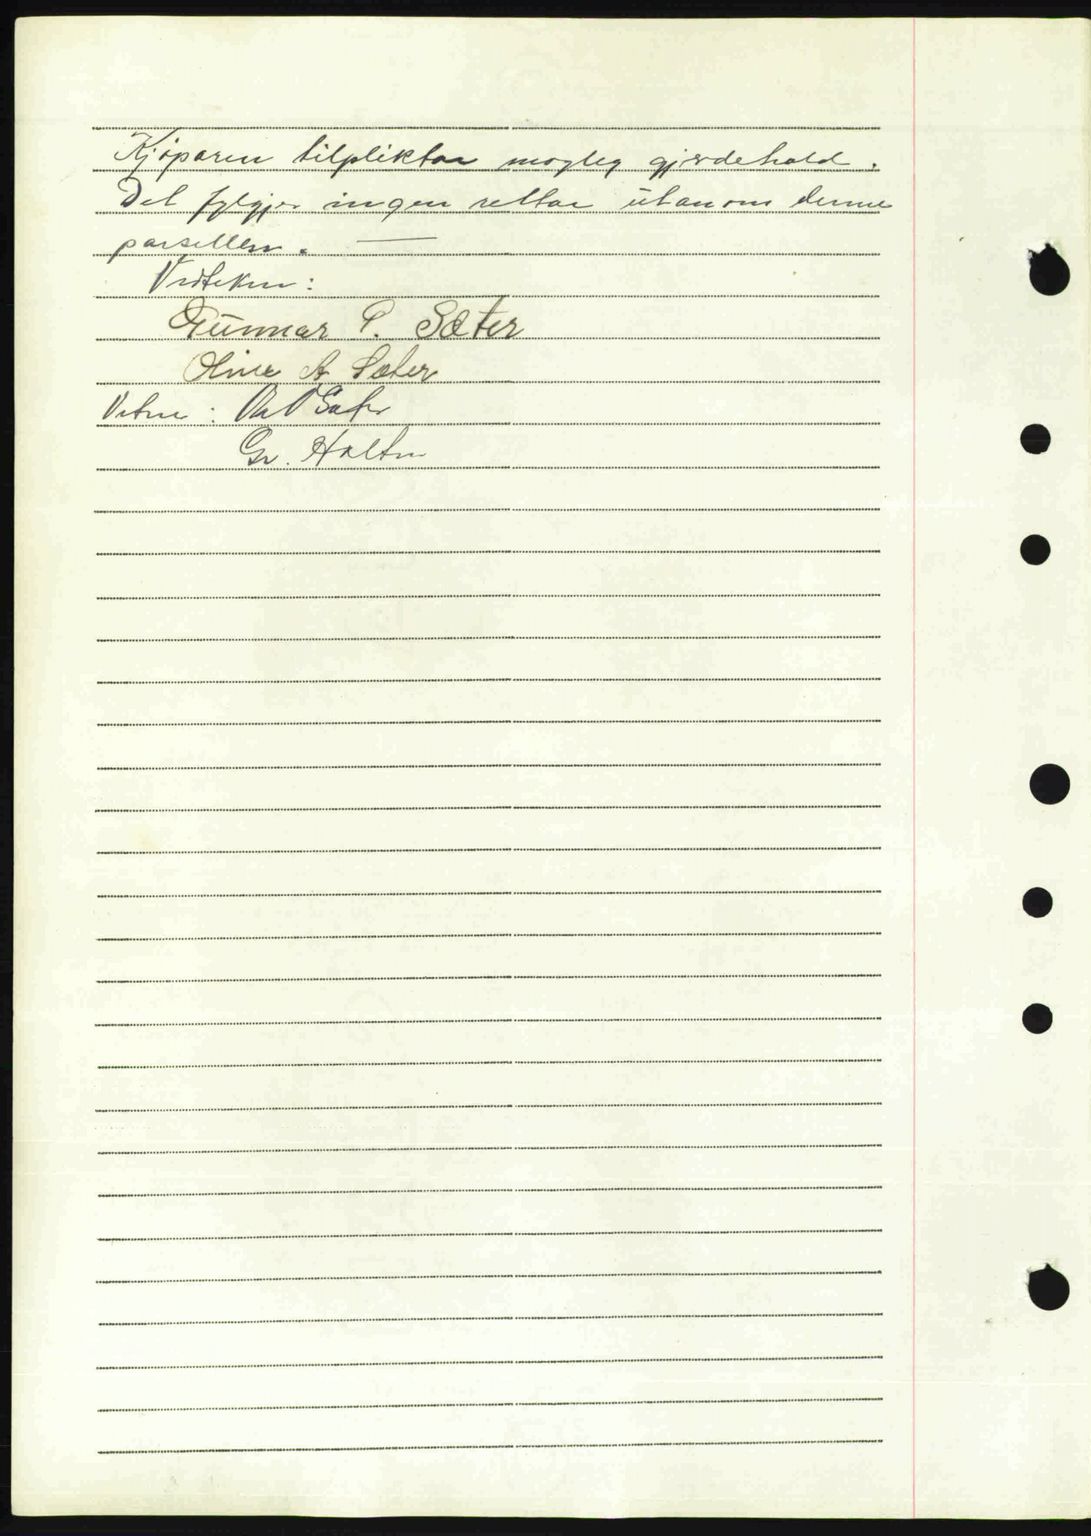 Kjöparen tilpliktar mogleg gjerdehald.
Det fylgjer ingen rettar utanom denne
parsellen. —
Vedteken:
Gunnar P. Sæter
Oline A Sæter
Vitne: Sæter
Gr. Holten